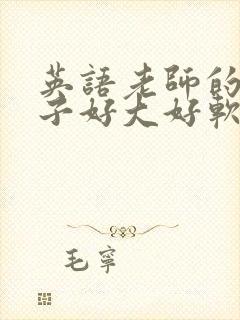 英語老師的
子好大好軟
毛寧